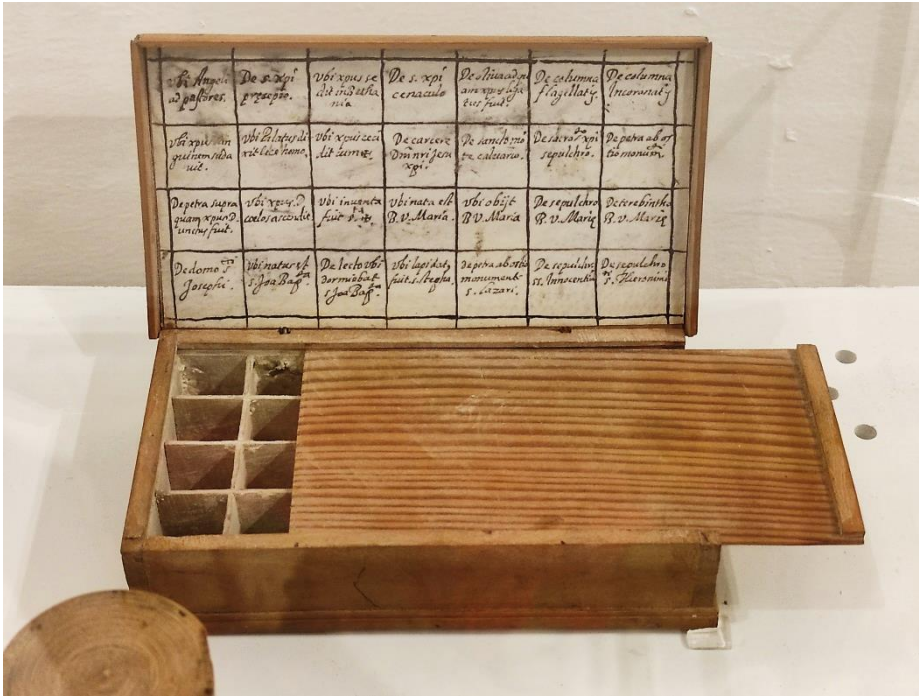 Vbi Angeli
ad pastores.
De s. xpi
presepio.
Vbi xpus se
dit in Betha
nia
De s. xpi
cenaculo
De oliua ad qu
am xpus liga
tus fuit.
De columna
flagellatis.
De columna
Incoronatis
Vbi xpus san
guinem suda
uit.
Vbi Pilatus di
xit Ecce homo.
Vbi xpus ceci
dit cum ✠.
De carcere
Dni nri Jesu
xpi.
De sancto mo
te caluario.
De sacro xpi
sepulchro.
De petra ab os
tio monum.
De petra supra
quam xpus D.
unctus fuit.
Vbi xpus D.
coelos ascendit.
Vbi inuenta
fuit s. ✠
Vbi nata est
B. V. Maria.
Vbi obijt
B. V. Maria
De sepulchro
B. V. Marię
De terebintho
B. V. Marię
De domo S.
Josephi.
Vbi natus est
S. Joa Bap.
De lecto Vbi
dormiebat
S. Joa Bap.
Vbi lapidat9
fuit S. Stepha.
de petra ab ostio
monument
S. Lazari.
De sepulchro
SS. Innocentiu
De sepulchro
S. Hieronimi